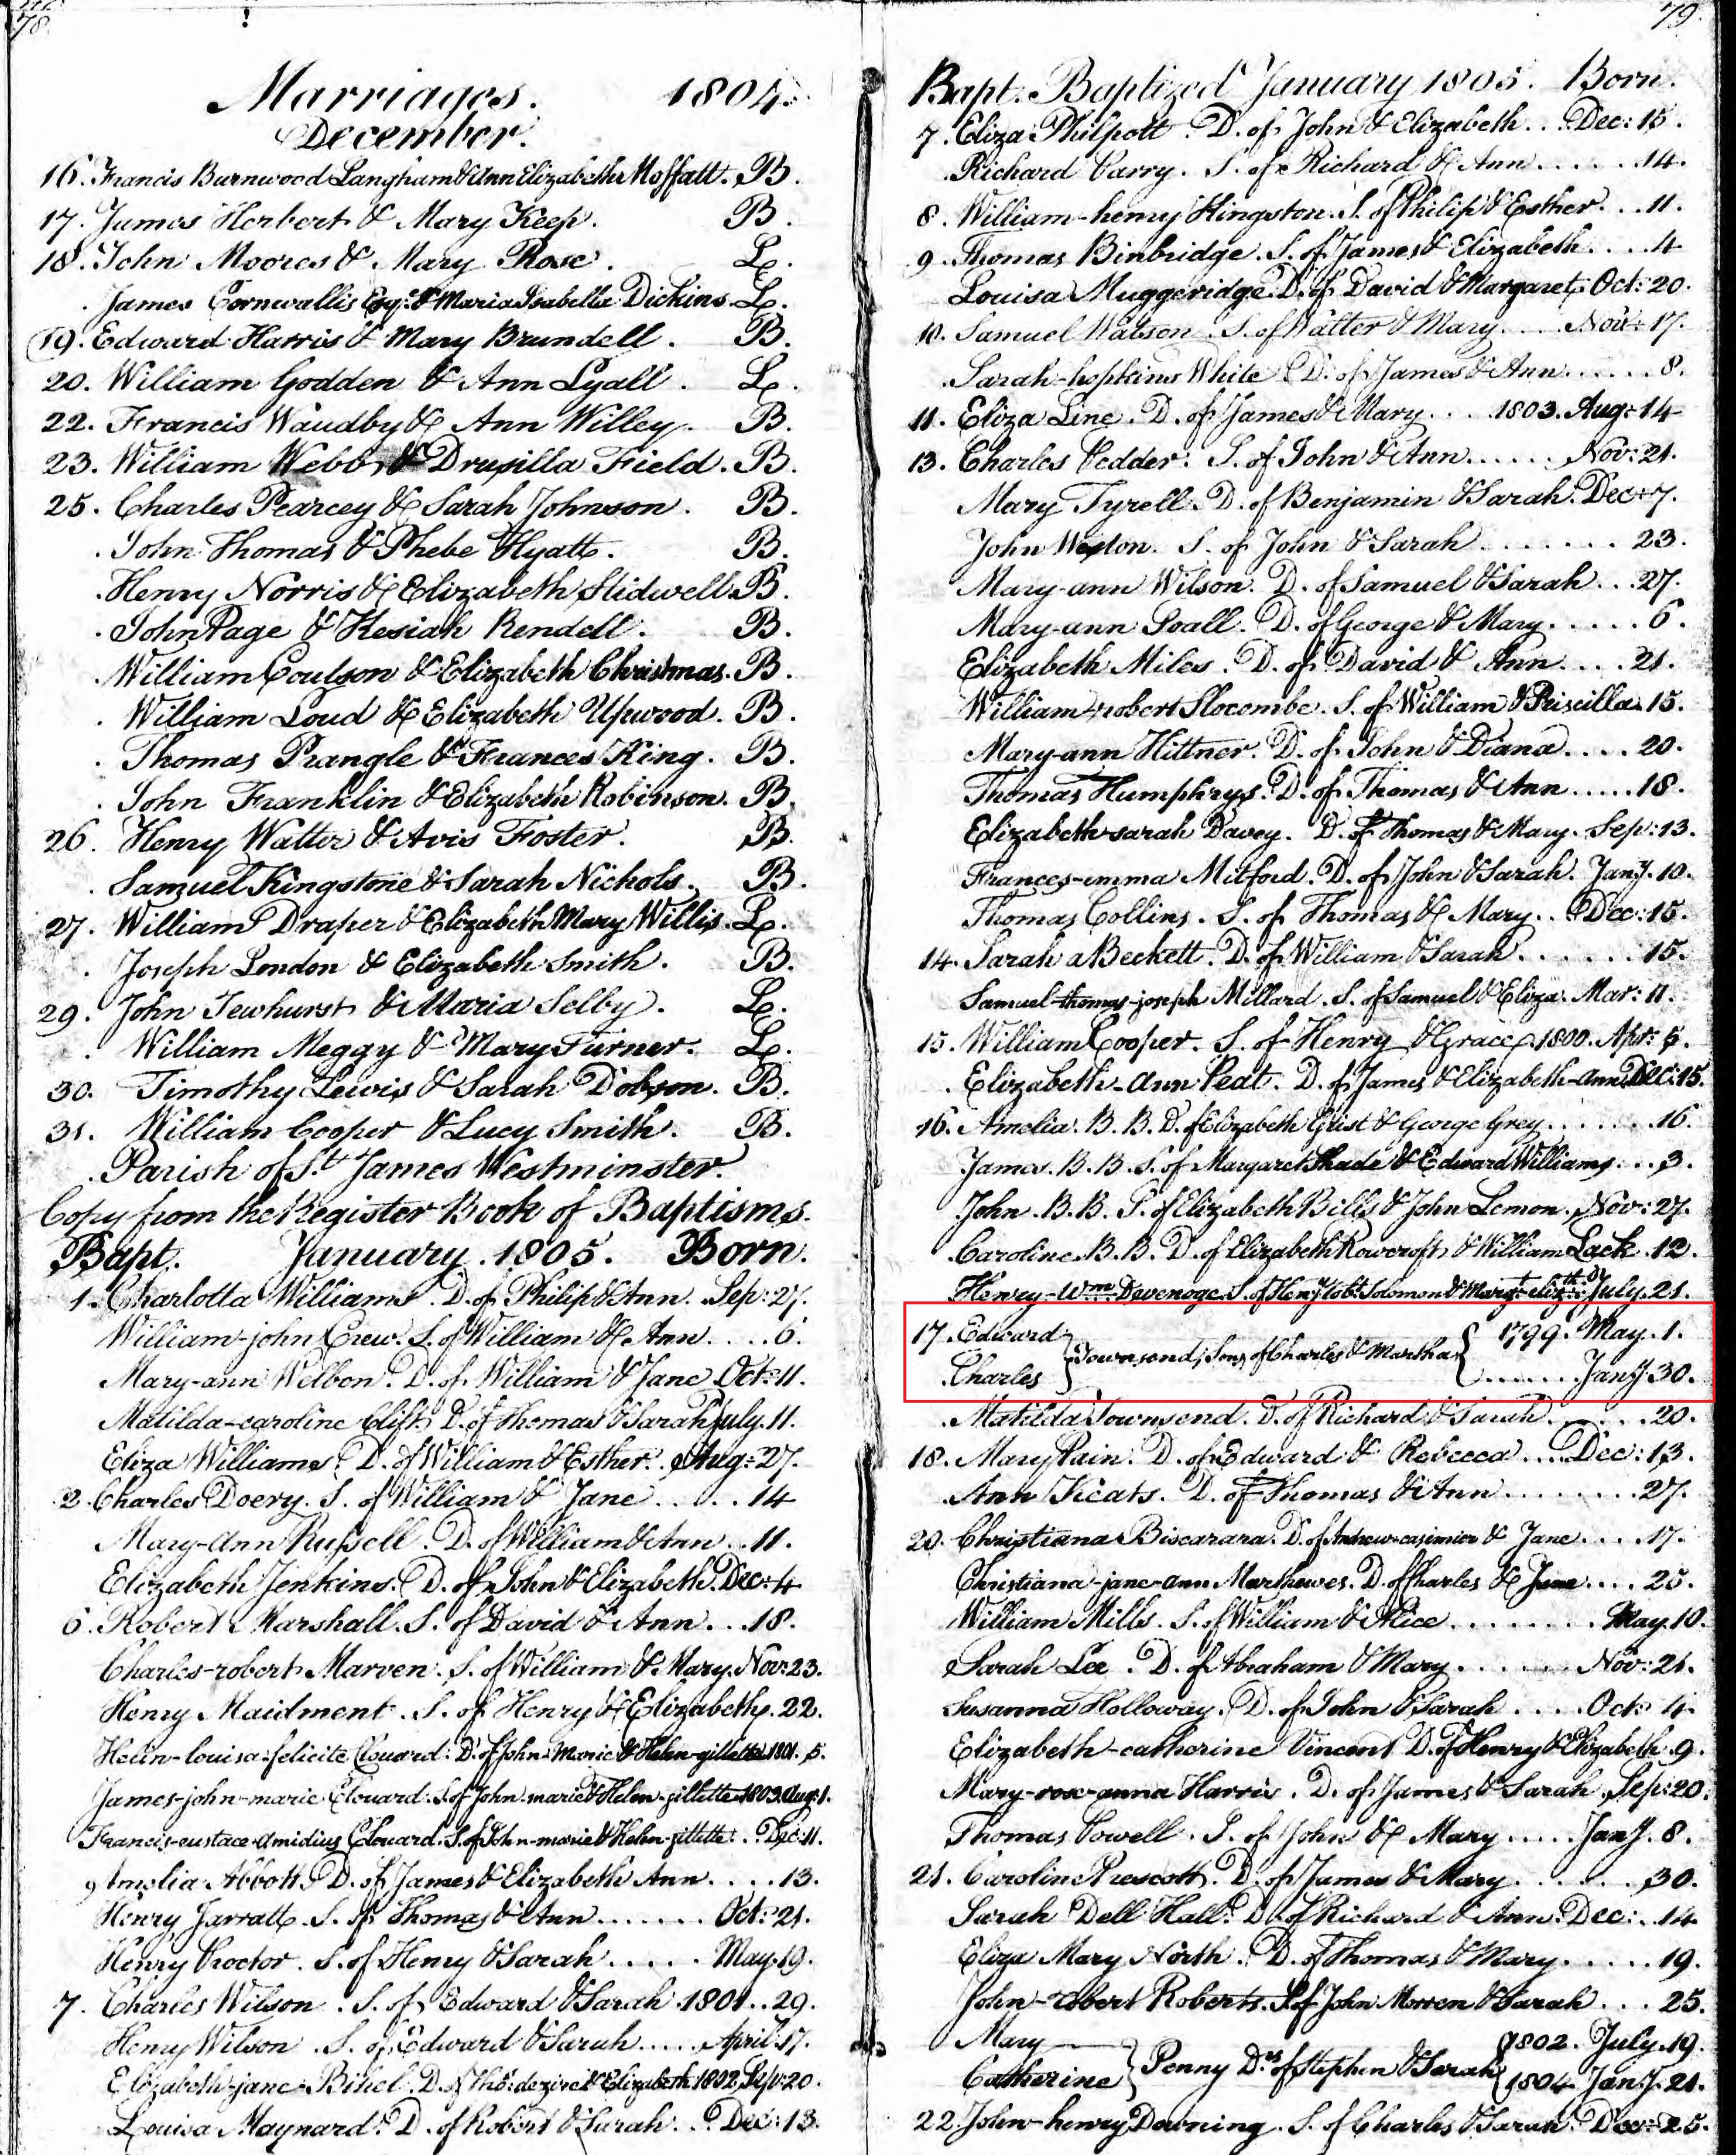 78.
Marriages. 1804.
December.
16. Francis Burnwood Langham & Ann Elizabeth Moffatt. B.
17. James Herbert & Mary Keep. B.
18. John Moores & Mary Rose. L.
. James Cornwallis Esqr. & Maria Isabella Dickins. L.
19. Edward Harris & Mary Brundell. B.
20. William Godden & Ann Lyall. L.
22. Francis Waudby & Ann Willey. B.
23. William Webb & Drusilla Field. B.
25. Charles Pearcey & Sarah Johnson. B.
. John Thomas & Phebe Hyatt. B.
. Henry Norris & Elizabeth Stidwell. B.
. John Page & Kesiah Rendell. B.
. William Coulson & Elizabeth Christmas. B.
. William Loud & Elizabeth Upwood. B.
. Thomas Prangle & Frances King. B.
. John Franklin & Elizabeth Robinson. B.
26. Henry Walter & Avis Foster. B.
. Samuel Kingstone & Sarah Nichols. B.
27. William Draper & Elizabeth Mary Willis. L.
. Joseph London & Elizabeth Smith. B.
29. John Tewhurst & Maria Selby. L.
. William Meggy & Mary Turner. L.
30. Timothy Lewis & Sarah Dobson. B.
31. William Cooper & Lucy Smith. B.
Parish of St. James Westminster.
Copy from the Register Book of Baptisms.
Bapt. January. 1805. Born.
1. Charlotta Williams. D. of Philip & Ann. Sep: 27.
William-john Crew. S. of William & Ann.... 6.
Mary-ann Welbon. D. of William & Jane Oct: 11.
Matilda-caroline Clift. D. of Thomas & Sarah July. 11.
Eliza Williams. D. of William & Esther. Aug: 27.
2. Charles Doery. S. of William & Jane..... 14
Mary-ann Russell. D. of William & Ann.. 11.
Elizabeth Jenkins. D. of John & Elizabeth. Dec: 4
6. Robert Marshall. S. of David & Ann... 18.
Charles-robert Marven. S. of William & Mary. Nov: 23.
Henry Maidment. S. of Henry & Elizabeth. 22.
Helin-louisa-felicite Clouard. D. of John-Marie & Helen-gillette 1801. 5.
James-john-marie Clouard. S. of John-marie & Helen-gillette 1803. Aug: 1.
Francis-eustace-Amidius Clouard. S. of John-marie & Helen-gillette.. Dec: 11.
9 Amelia Abbott. D. of James & Elizabeth Ann.... 13.
Henry Jarratt. S. of Thomas & Ann....... Oct: 21.
Henry Proctor. S. of Henry & Sarah..... May. 19.
7. Charles Wilson. S. of Edward & Sarah. 1801.. 29.
Henry Wilson. S. of Edward & Sarah..... April. 17.
Elizabeth-jane Bihel. D. of Thos: dezire & Elizabeth 1802. Sep: 20.
Louisa Maynard. D. of Robert & Sarah... Dec: 13.
79.
Bapt. Baptized January 1805. Born.
7. Eliza Philpott. D. of John & Elizabeth... Dec: 15.
Richard Carry. S. of Richard & Ann...... 14.
8. William-henry Hingston. S. of Philip & Esther... 11.
9. Thomas Binbridge. S. of James & Elizabeth.... 4
Louisa Muggeridge. D. of David & Margaret. Oct: 20.
10. Samuel Watson. S. of Walter & Mary.... Nov: 17.
Sarah-hopkins White. D. of James & Ann...... 8.
11. Eliza Line. D. of James & Mary... 1803. Aug: 14
13. Charles Vedder. S. of John & Ann...... Nov: 21.
Mary Tyrell. D. of Benjamin & Sarah. Dec: 7.
John Weston. S. of John & Sarah....... 23.
Mary-ann Wilson. D. of Samuel & Sarah... 27.
Mary-ann Soall. D. of George & Mary..... 6.
Elizabeth Miles. D. of David & Ann.... 21.
William-robert Slocombe. S. of William & Priscilla 15.
Mary-ann Hittner. D. of John & Diana.... 20.
Thomas Humphrys. D. of Thomas & Ann..... 18.
Elizabeth-sarah Davey. D. of Thomas & Mary. Sep: 13.
Frances-emma Mitford. D. of John & Sarah. Jany. 10.
Thomas Collins. S. of Thomas & Mary.. Dec: 15.
14. Sarah aBeckett. D. of William & Sarah....... 15.
Samuel-thomas-joseph Millard. S. of Samuel & Eliza. Mar: 11.
15. William Cooper. S. of Henry & Grace. 1800. Apr: 5.
. Elizabeth-Ann Peat. D. of James & Elizabeth-ann. Dec: 15.
16. Amelia. B. B. D. of Elizabeth Grist & George Grey....... 16.
James. B. B. S. of Margaret Shade & Edward Williams... 3.
John. B. B. S. of Elizabeth Bills & John Lemon. Nov: 27.
Caroline. B. B. D. of Elizabeth Rowcroft & William Lack. 12.
Henry-Wm. Devenoge S. of Heny Tobs. Solomon & Margt. elizth. July. 21.
17. Edward } Townsend, Sons of Charles & Martha { 1799. May. 1.
Charles ....... Jany. 30.
Matilda Townsend. D. of Richard & Sarah...... 20.
18. Mary Pain. D. of Edward & Rebecca... Dec: 13.
Ann Keats. D. of Thomas & Ann........ 27.
20. Christiana Biscarara. D. of Andrew-casimier & Jane.... 17.
Christiana-jane-ann Marthewes. D. of Charles & Jane.... 25.
William Mills. S. of William & Alice........ May. 10.
Sarah Lee. D. of Abraham & Mary...... Nov: 21.
Susanna Holloway. D. of John & Sarah.... Oct: 4.
Elizabeth-catherine Vincent D. of Henry & Elizabeth. 9.
Mary-rose-anna Harris. D. of James & Sarah. Sep: 20.
Thomas Powell. S. of John & Mary..... Jany. 8.
21. Caroline Prescott. D. of James & Mary....... 30.
Sarah Dell Hall. D. of Richard & Ann. Dec: 14
Eliza Mary North. D. of Thomas & Mary..... 19.
John-robert Roberts. S. of John Morren & Sarah... 25.
Mary } Penny Drs. of Stephen & Sarah { 1802. July. 19.
Catherine 1804 Jany. 21.
22. John-henry Downing. S. of Charles & Sarah. Dec: 25.